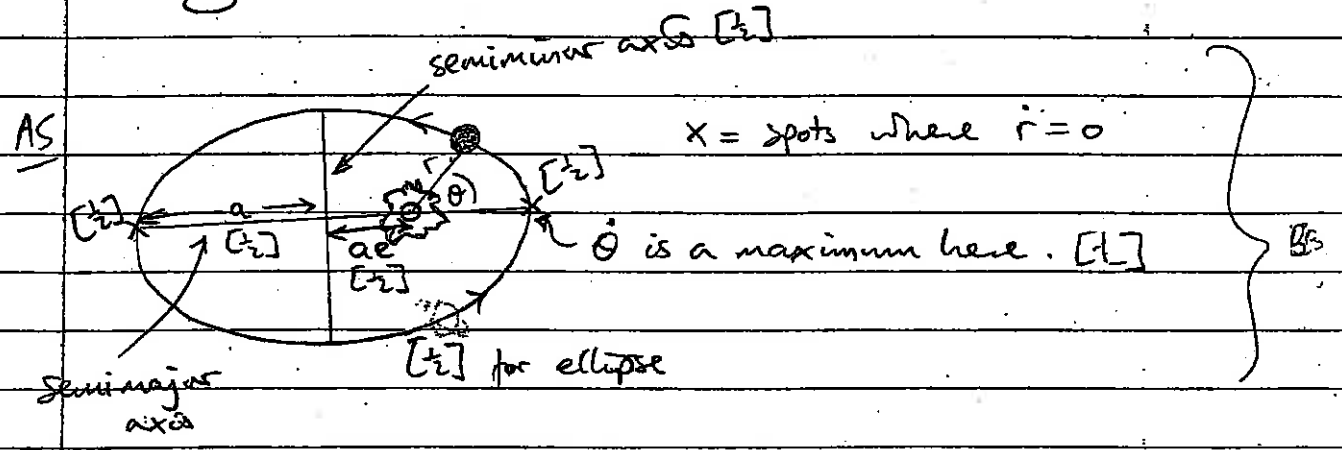 semiminor axis [½]
A5
x = spots where ṙ = 0
r
θ
[½]
[½]
a
[½]
ae
[½]
θ̇ is a maximum here. [1]
[½] for ellipse
semimajor
axis